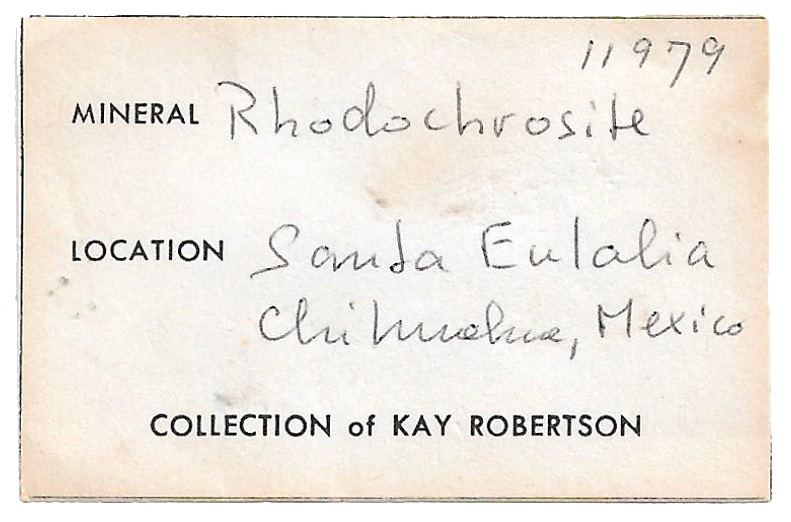 11979
MINERAL Rhodochrosite
LOCATION Santa Eulalia
Chihuahua, Mexico
COLLECTION of KAY ROBERTSON